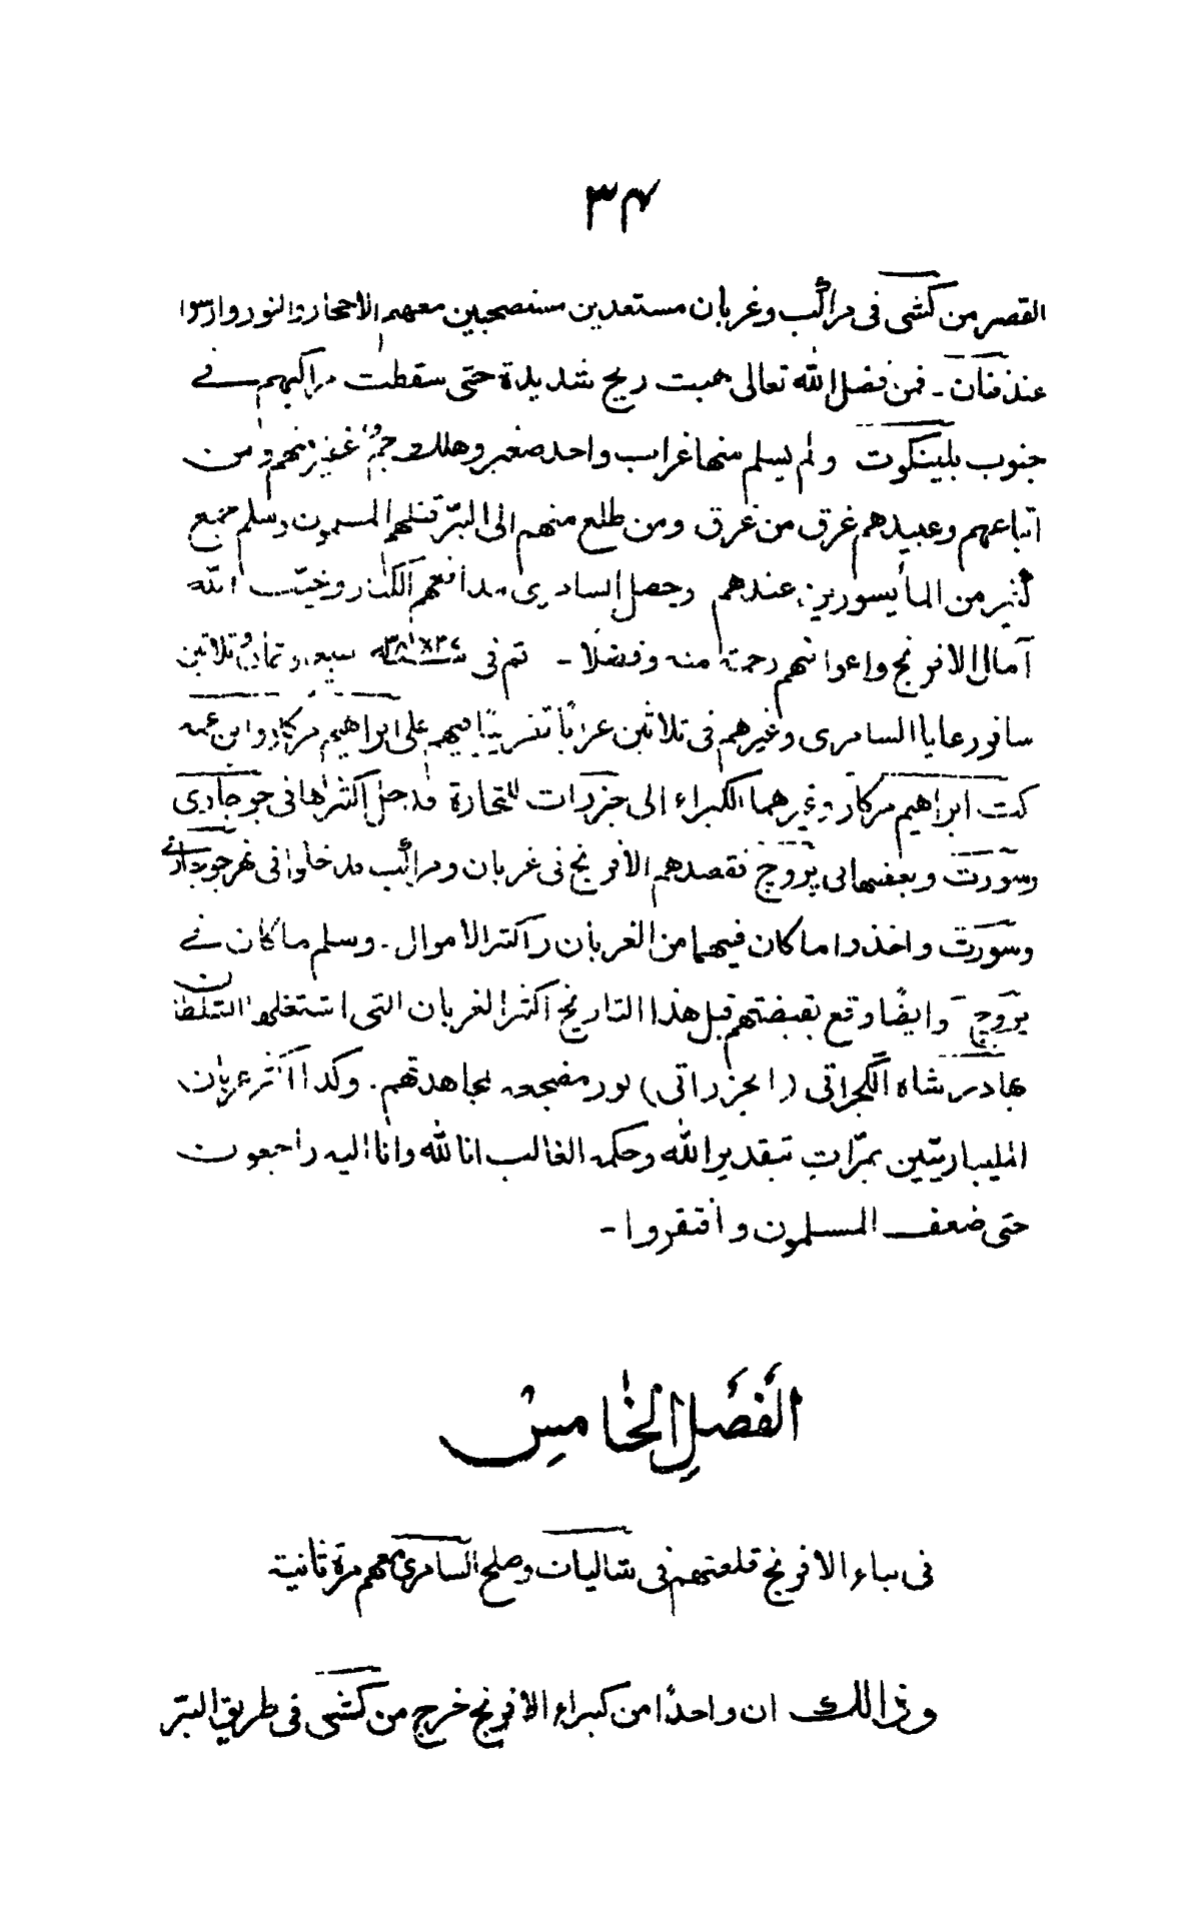 ٣٤
القصر من كشي في مراكب وغربان مستعدين مستصحبين معهم الاحجار والنور وارسوا
عند فنان - فمن فضل الله تعالى هبت ريح شديدة حتى سقطت مراكبهم في
جنوب بلينكوت ولم يسلم منها غراب واحد صغير وهلك جمٌّ غفير منهم ومن
اتباعهم وعبيدهم غرق من غرق ومن طلع منهم الى البرّ قتلهم المسلمون وسلم جمع
كثير من المأيسورين عندهم وحصل السامري مدافعهم الكبار وخيّب الله
آمال الافرنج واعوانهم رحمة منه وفضلا - ثم في سنة سبع وثلاثين
سافر رعايا السامري وغيرهم في ثلاثين غرابًا تقريبًا فيهم علي ابراهيم مركار وابن عمه
كت ابراهيم مركار وغيرهما الكبراء الى جزرات للتجارة فدخل اكثرها في جوجاري
وسورت وبعضها بروج فقصدهم الافرنج في غربان ومراكب فدخلوا في نهر جوجاري
وسورت واخذوا ما كان فيهما من الغربان واكثر الاموال - وسلم ما كان في
بروج وايضًا وقع بقبضتهم قبل هذا التاريخ اكثر الغربان التي استعملها السلطان
بهادر شاه الگجراتي (الجزراتي) لمجاهدتهم . وكذا اكثر غربان
المليباريّين بمرّات بتقدير الله وحكمه الغالب انا لله وانا اليه راجعون
حتى ضعف المسلمون وافتقروا -
الفَصَلِ الخَامِسْ
في بناء الافرنج قلعتهم في شاليات وصلح السامري معهم مرة ثانية
وذالك ان واحدًا من كبراء الافرنج خرج من كشي في طريق البّر